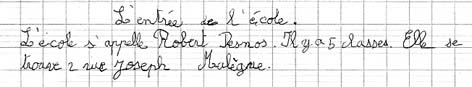 L'entrée de l'école.
L'école s'appelle Robert Desnos. Il y a 5 classes. Elle se
trouve 2 rue Joseph Malègue.